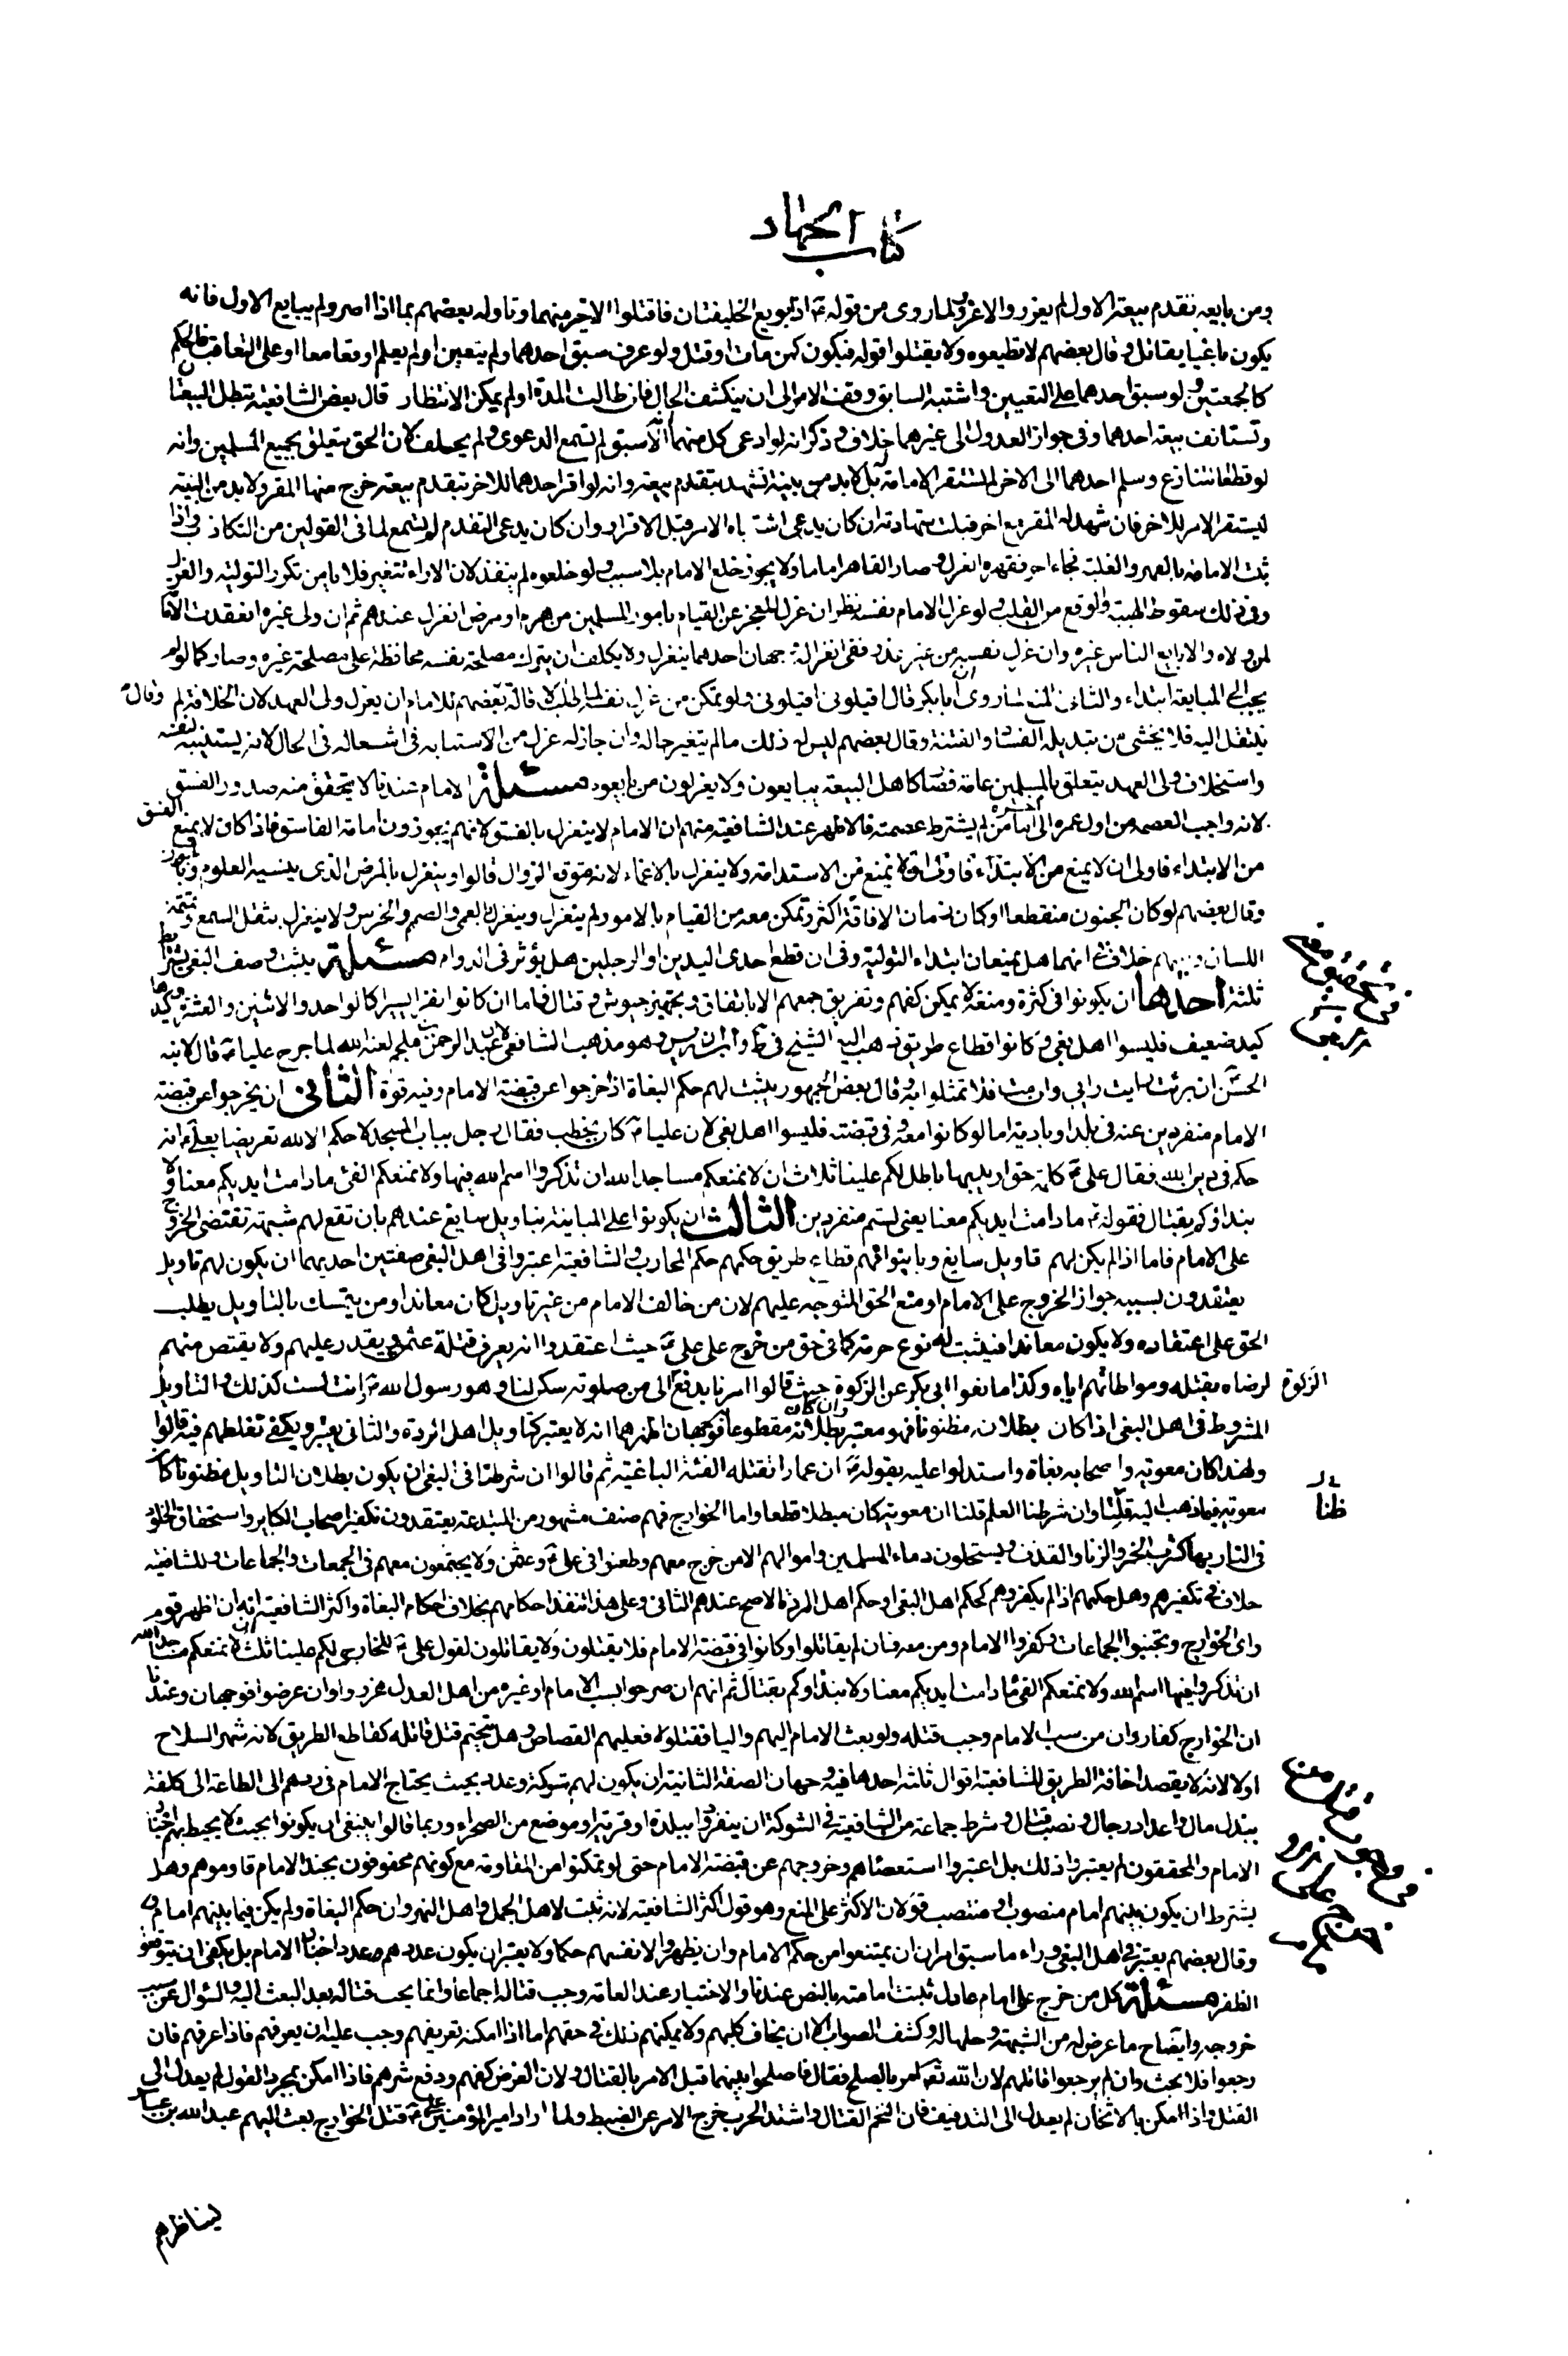 كتاب الجهاد
ومن بايعه بتقدم بيعة الاول لم يعزر والا عزر ولما روى من قوله ع اذا بويع الخليفتان فاقتلوا الاخير منهما وتاوله بعضهم بما اذا اصر ولم يبايع الاول فانه
يكون باغيا يقاتل وقال بعضهم لا تطيعوه ولا يقتلوا قوله فيكون كمن مات او قتل ولو عرف سبق احدهما ولم يتعين او لم يعلم اوقعا معا او على التعاقب فالحكم
كالجمعتين ولو سبق احدهما على التعيين واشتبه السابق وقف الامر الى ان ينكشف الحال فان طالت المدة او لم يمكن الانتظار قال بعض الشافعية تبطل البيعتان
وتستانف بيعة احدهما وفى جواز العدول الى غيرهما خلاف وذكر انه لو ادعى كل منهما انه الاسبق لم تسمع الدعوى ولم يحلف لان الحق يتعلق بجميع المسلمين وانه
لو قطعا التنازع وسلم احدهما الى الاخر لم تستقر الامامة له بل لا بد من بينة تشهد بتقدم بيعته وانه لو اقر احدهما للاخر بتقدم بيعته خرج منها المقر ولا بد من البينة
ليستقر الامر للاخر فان شهد له المقر مع اخر قبلت شهادته ان كان يدعى اشتباه الامر قبل الاقرار وان كان يدعى التقدم لم تسمع لما فى القولين من التكاذب فاذا
ثبت الامامة بالقهر والغلبة فجاء اخر فقهره انعزل وصار القاهر اماما ولا يجوز خلع الامام بلا سبب ولو خلعوه لم ينفذ لان الاراء تتغير فلا يامن تكرر التولية والعزل
وفى ذلك سقوط الهيبة والوقع من القلب ولو عزل الامام نفسه نظر ان عزل للعجز عن القيام بامور المسلمين من هرم او مرض انعزل عندهم ثم ان ولى غيره انعقدت الامامة
لمن ولاه والا بايع الناس غيره وان عزل نفسه من غير عذر ففى انعزاله وجهان احدهما ينعزل ولا يكلف ان يترك مصلحة نفسه محافظة على مصلحة غيره وصار كما لو لم
يجب الى المبايعة ابتداء والثانى المنع لما روى ان ابا بكر قال اقيلونى اقيلونى ولو تمكن من عزل نفسه لما طلب الاقالة وقال بعضهم للامام ان يعزل ولى العهد لان الخلافة لم
تنتقل اليه فلا يخشى من تبديله الفساد والفتنة وقال بعضهم ليس له ذلك ما لم يتغير حاله وان جاز له عزل من الاستنابه فى اشغاله فى الحال لانه يستنيبه لنفسه
واستخلاف ولى العهد يتعلق بالمسلمين عامة فصار كاهل البيعة يبايعون ولا يعزلون من بايعوه مسئلة الامام عندنا لا يتحقق منه صدور الفسق
لانه واجب العصمه من اول عمره الى اخره اما من لم يشترط عصمته فالاظهر عند الشافعية منهم ان الامام لا ينعزل بالفسق لانهم يجوزون امامة الفاسق فاذا كان لا يمنع الفسق
من الابتداء فاولى ان لا يمنع من الاستدامة ولا ينعزل بالاغماء لانه متوقع الزوال قالوا وينعزل بالمرض الذى ينسيه العلوم وبالجنون
وقال بعضهم لو كان الجنون منقطعا وكان زمان الافاقة اكثر وتمكن معه من القيام بالامور لم ينعزل وينعزل بالعمى والصمم والخرس ولا ينعزل بثقل السمع وتمتمة
اللسان وبينهم خلاف فى انهما هل يمنعان ابتداء التولية وفى ان قطع احدى اليدين او الرجلين هل يؤثر فى الدوام مسئلة يثبت وصف البغى بشرائط
ثلثة احدها ان يكونوا فى كثرة ومنعة لا يمكن كفهم وتفريق جمعهم الا باتفاق وتجهيز جيوش وقتال فاما ان كانوا نفرا يسيرا كالواحد والاثنين والعشرة وكيدها
كيد ضعيف فليسوا اهل بغى وكانوا قطاع طريق ذهب اليه الشيخ فى ط وابن ادريس وهو مذهب الشافعى لان عبد الرحمن بن ملجم لعنه الله لما جرح عليا ع قال لابنه
الحسن ان برئت رايت رايى وان مت فلا تمثلوا به وقال بعض الجمهور يثبت لهم حكم البغاة اذا خرجوا عن قبضة الامام وفيه قوة الثانى ان يخرجوا عن قبضة
الامام منفردين عنه فى بلد او بادية اما لو كانوا معه وفى قبضته فليسوا اهل بغى لان عليا ع كان يخطب فقال رجل بباب المسجد لا حكم الا لله تعريضا بعلى ع انه
حكم فى دين الله فقال على ع كلمة حق اريد بها باطل لكم علينا ثلاث ان لا نمنعكم مساجد الله ان تذكروا اسم الله فيها ولا نمنعكم الفئ ما دامت ايديكم معنا ولا
نبداؤكم بقتال فقوله ع ما دامت ايديكم معنا يعنى لستم منفردين الثالث ان يكونوا على المباينة بتاويل سايغ عندهم بان تقع لهم شبهة تقتضى الخروج
على الامام فاما اذا لم يكن لهم تاويل سايغ وباينوا فهم قطاع طريق حكمهم حكم المحارب والشافعية اعتبروا فى اهل البغى صفتين احديهما ان يكون لهم تاويل
يعتقدون بسببه جواز الخروج على الامام او منع الحق المتوجه عليهم لان من خالف الامام من غير تاويل كان معاندا ومن يتمسك بالتاويل يطلب
الحق على اعتقاده ولا يكون معاندا فيثبت له نوع حرمة كما فى حق من خرج على على ع حيث اعتقدوا انه يعرف قتلة عثمن ويقدر عليهم ولا يقتص منهم
لرضاه بقتله ومواطاتهم اياه وكذا ما نعوا ابى بكر عن الزكوة حيث قالوا امرنا بدفع الزكوة الى من صلوته سكن لنا وهو رسول الله ص وانت لست كذلك والتاويل
المشروط فى اهل البغى اذا كان بطلانه مظنونا فهو معتبر وان كان بطلانه مقطوعا فوجهان اظهرهما انه لا يعتبر كتاويل اهل الردة والثانى يعتبر ويكفى تغليطهم فيه قالوا
ولهذا كان معوية واصحابه بغاة واستدلوا عليه بقوله ع ان عمارا تقتله الفئة الباغية ثم قالوا ان شرطنا فى البغى ان يكون بطلان التاويل مظنونا كان
معوية فيما ذهب اليه مبطلا ظنا وان شرطنا العلم قلنا ان معوية كان مبطلا قطعا واما الخوارج فهم صنف مشهور من المبتدعة يعتقدون تكفير اصحاب الكباير واستحقاق الخلود
فى النار بها كشرب الخمر والزنا والقذف ويستحلون دماء المسلمين واموالهم الا من خرج معهم وطعنوا فى على ع وعثمن ولا يجتمعون معهم فى الجمعات والجماعات وللشافعية
خلاف فى تكفيرهم وهل حكمهم اذا لم يكفروهم كحكم اهل البغى او حكم اهل الردة الاصح عندهم الثانى وعلى هذا تنفذ احكامهم بخلاف احكام البغاة واكثر الشافعية انه ان اظهر قوم
راى الخوارج وتجنبوا الجماعات وكفروا الامام ومن معه فان لم يقاتلوا وكانوا فى قبضة الامام فلا يقتلون ولا يقاتلون لقول على ع للخارجى لكم علينا ثلث ان لا نمنعكم مساجد الله
ان تذكروا فيها اسم الله ولا نمنعكم الفئ ما دامت ايديكم معنا ولا نبداوكم بقتال ثم انهم ان صرحوا بسب الامام او غيره من اهل العدل عزروا وان عرضوا فوجهان وعندنا
ان الخوارج كفار وان من سب الامام وجب قتله ولو بعث الامام اليهم واليا فقتلوه فعليهم القصاص وهل يتحتم قتل قاتله كقاطع الطريق لانه شهر السلاح
اولا لانه لا يقصد اخافة الطريق للشافعية اقوال ثلثة احدها فيه وجهان الصفة الثانية ان يكون لهم شوكة وعدد بحيث يحتاج الامام فى ردهم الى الطاعة الى كلفة
ببذل مال واعداد رجال ونصب قتال وشرط جماعة من الشافعية فى الشوكة ان ينفردوا ببلدة او قرية او موضع من الصحراء وربما قالوا ينبغى ان يكونوا بحيث لا يحيط بهم اجناد
الامام والمحققون لم يعتبروا ذلك بل اعتبروا استعصاءهم وخروجهم عن قبضة الامام حتى لو تمكنوا من المقاومة مع كونهم محفوفون بجند الامام قاوموهم وهل
يشترط ان يكون بينهم امام منصوب او منتصب قولان الاكثر على المنع وهو قول اكثر الشافعية لانه ثبت لاهل الجمل واهل النهروان حكم البغاة ولم يكن فيما بينهم امام
وقال بعضهم يعتبر فى اهل البغى وراء ما سبق امران ان يمتنعوا من حكم الامام وان يظهروا لانفسهم حكما ولا يعتبر ان يكون عددهم عدد اجناد الامام بل يكفى ان يتوقعوا
الظفر مسئلة كل من خرج على امام عادل ثبتت امامته بالنص عندنا والاختيار عند العامة وجب قتاله اجماعا وانما يجب قتاله بعد البعث اليه والسؤال عن سبب
خروجه وايضاح ما عرض له من الشبهة وحلها له وكشف الصواب الا ان يخاف كلبهم ولا يمكنهم ذلك فى حقهم اما اذا امكنه تعريفهم وجب عليه ان يعرفهم فاذا عرفهم فان
رجعوا فلا بحث وان لم يرجعوا قاتلهم لان الله تعالى امر بالصلح فقال فاصلحوا بينهما قبل الامر بالقتال ولان الغرض كفهم ودفع شرهم فاذا امكن بمجرد القول لم يعدل الى
القتل واذا امكن بالاثخان لم يعدل الى التدفيف فان التحم القتال واشتد الحرب خرج الامر عن الضبط ولما اراد امير المؤمنين على ع قتل الخوارج بعث اليهم عبد الله بن عباس
ليناظرهم